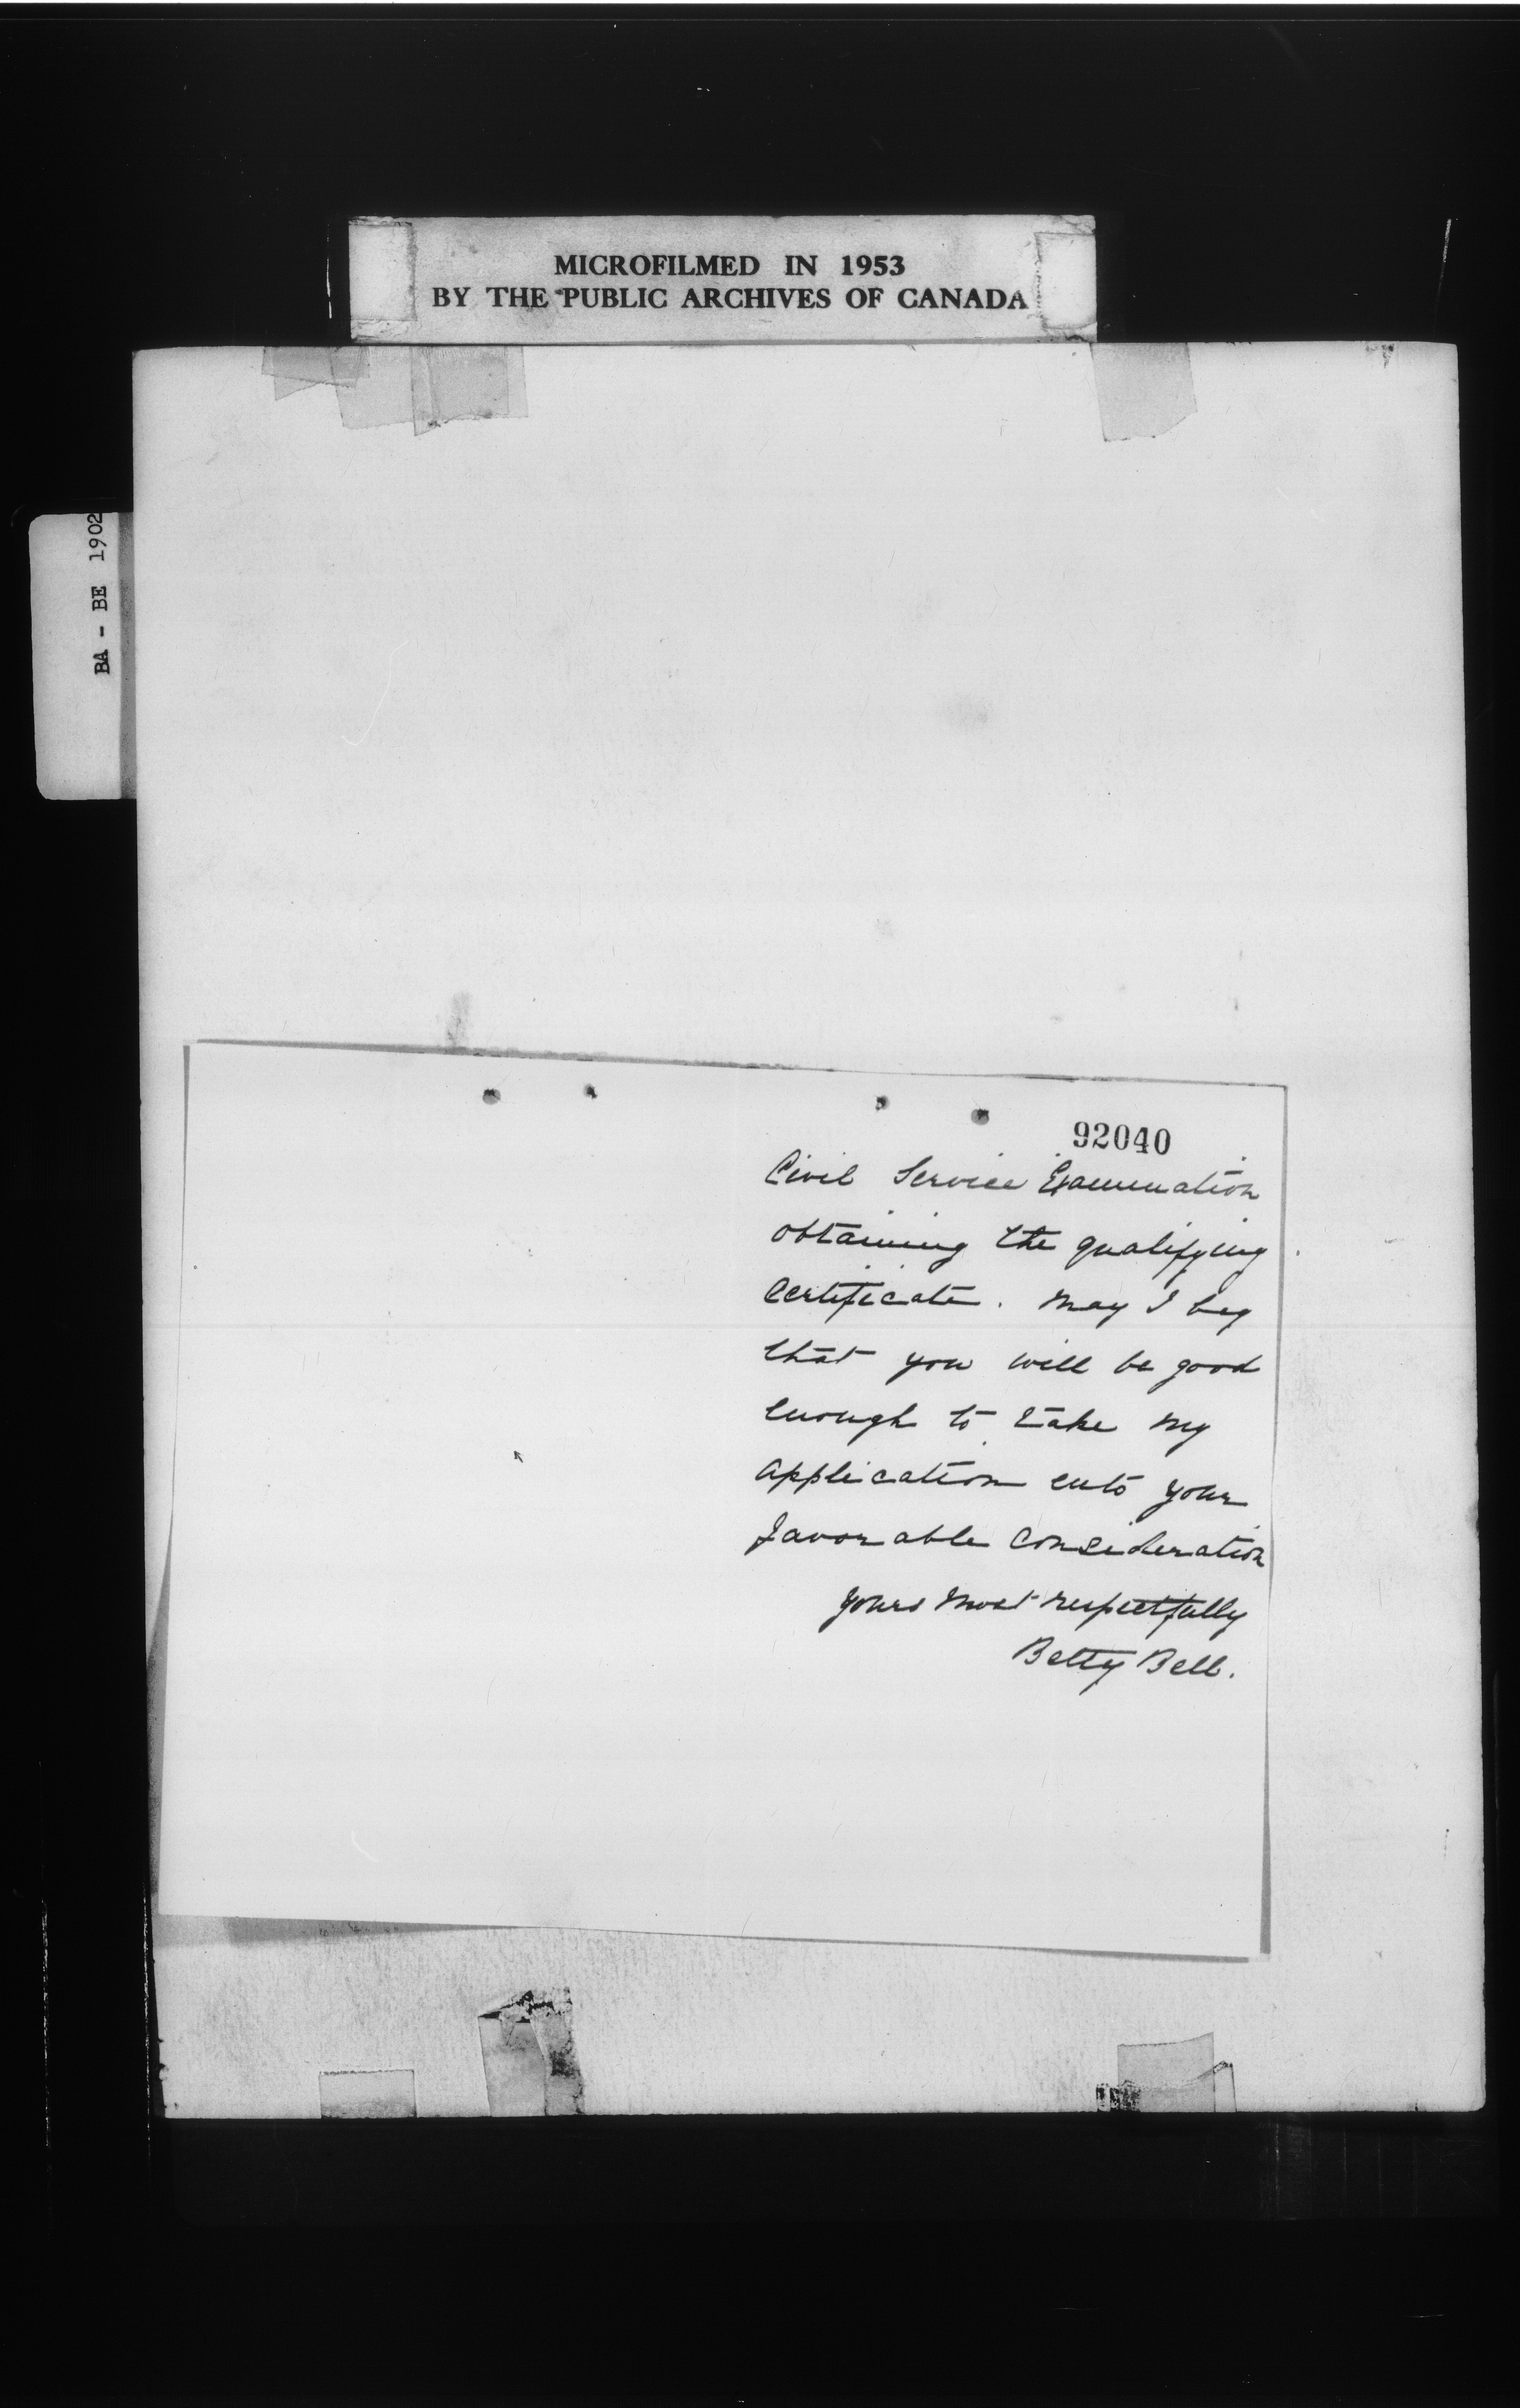 MICROFILMED IN 1953
BY THE PUBLIC ARCHIVES OF CANADA
BA - BE 1902
92040
Civil Service Examination
obtaining the qualifying
Certificate. May I beg
that you will be good
enough to take my
application into your
favorable consideration
Yours most respectfully
Betty Bell.